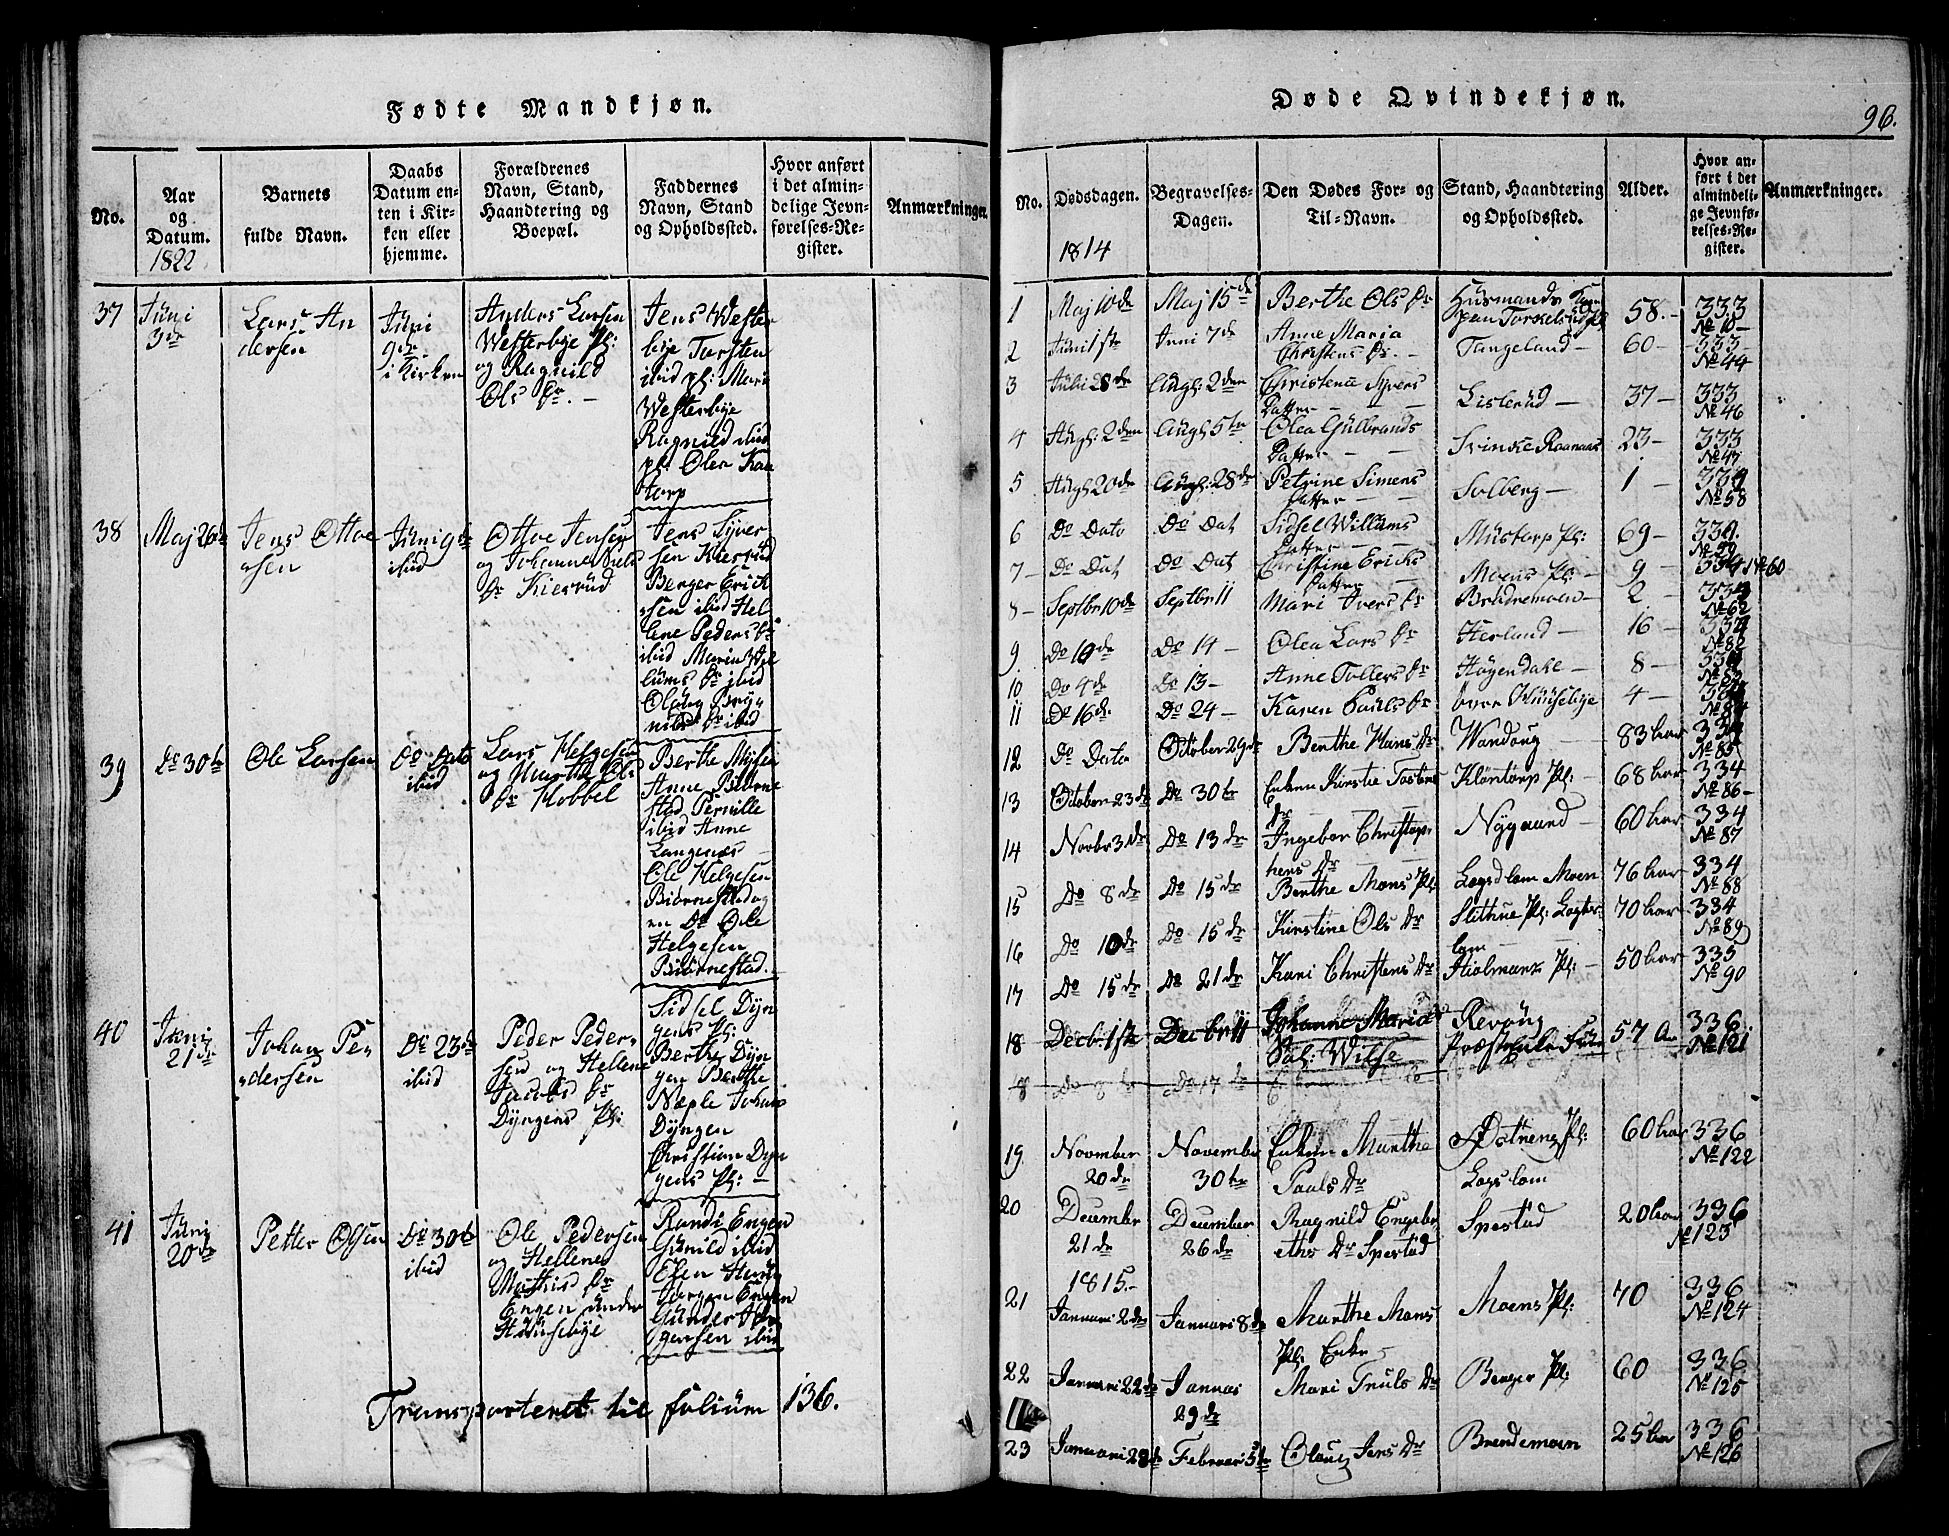 Fødte Mandkjøn.
No.
Aar
og
Datum.
1822
Barnets
fulde Navn.
Daabs
Datum en-
ten i Kir-
ken eller
hjemme.
Forældrenes
Navn, Stand,
Haandtering og
Boepæl.
Faddernes
Navn, Stand
og Opholdssted.
Hvor anført
i det almin-
delige Jevn-
førelses-Re-
gister.
Anmærkninger.
37
Juni
3de
Lars An
dersen
Juni
9de
i Kirken
Anders Larsen
Westerbye Pl:
og Ragnild
Ols Dr. -
Jens Wester
bye Torsten
ibid pl: Mari
Westerbye
Ragnild ibid
pl: Olen Kaa
torp
38
Maj 26de
Jens Ottoe
sen
Juni 9de
ibid
Ottoe Jensen
og Johanne Niels
Dr Kierrud
Jens Syver
sen Kierrud
Berger Erick
sen ibid Hel
lene Peders Dr
ibid Maria Wil
lums Dr ibid
Olaug Bryn
nilds Dr ibid
39
Do 30te
Ole Larsen
Do Dato
ibid
Lars Helgesen
og Marthe Ols
Dr Hobbel
Berthe Mysen
Anne Biørne
stad Pernille
ibid Anne
Langenæs
Ole Helgesen
Biørnestad og
en Do Ole
Helgesen
Biørnestad.
40
Juni
21de
Johan Pe
dersen
Do 23de
ibid
Peder Peder-
sen og Hellene
Jacobs Dr
Dyngens Pl:
Sidsel Dyn
gens Pl:
Berthe Dyn
gen Berthe
Næple Johan
Dyngen
Christian Dyn
gens Pl: -
41
Juni
20de
Petter Olsen
Do 30te
ibid
Ole Pedersen
og Hellene
Mathis Dr
Engen under
Huusebye
Randi Engen
Gunild ibid
Jørgen Engen
Gunder Jør
gensen ibid
Transporteret til folium 136.
Døde Qvindekjøn.
96.
No.
Dødsdagen.
1814
Begravelses-
Dagen.
Den Dødes For- og
Til-Navn.
Stand, Haandtering
og Opholdssted.
Alder.
Hvor an-
ført i det
almindeli-
ge Jevnfø-
relses-Re-
gister.
Anmærkninger.
1 Maj 10de Maj 15de Berthe Ols Dr Huusmands 58. - 333
No 10 -
2 Juni 1ste Juni 7de Anne Maria
Christens Dr. - Tangeland - 60 - 333
No 44
3 Juli 28de Augs: 2den Christence Syvers
Datter - - Lislerud - 37 - 333
No 46
4 Augs: 2den Augs 5te Olea Gulbrands
Datter - - Svinske Raanaas 23 - 333
No 47
5 Augs 20de Augs: 28de Petrine Simens
Datter - - Solberg - 1 - 334
No 58
6 Do Dato Do Dat Sidsel Willums
Datter - - Mustorp Pl: 69 - 334.
No 59
7 - Do Dat Do Dat Christine Ericks
Datter - Moens Pl: - 9 - 334 No 60
8 - Septbr 10de Septbr 11 Mari Ivers Dr Brødremoen - 2 - 334
No 62
9 Do 10de Do 14 - Olea Lars Dr Herland - 16 - 334
No 82
10 Do 4de Do 13 - Anne Tollers Dr Høgendahl - 8 - 334
No 83
11 Do 16de Do 24 - Karen Pauls Dr over Huusebye 4 - 334
No 84
12 Do Dato October 29de Berthe Hans Dr Wandoug 83 Aar 334
No 85
13 October 23de Do 30te Enken Kirstie Tostens
Dr - Kløntorp Pl: - 68 Aar 334
No 86 -
14 Novbr 3de Do 13de Ingebor Christop-
hens Dr Nygaard - 60 Aar 334
No 87
15 Do 8de Do 15de Berthe Mons Pl: Logsd lam Moen 76 Aar 334
No 88
16 Do 10de Do 15de Kirstine Ols Dr Slithue Pl: Logter
lem 70 Aar 334
No 89
17 Do 15de Do 21de Kari Christens Dr Hiolmark Pl: - 50 Aar 335
No 90
18 Decbr: 1ste Decbr 11 Johanne Maria
Sal: Wilse Revoug
57 A. 336.
No 121
8 Do 8de Do 17de
19 November
20de November
30te Enken Marthe
Pauls Dr Østreng Pl:
Logslam 60 Aar 336
No 122
20 December
21de December
26de Ragnild Engebr
eths Dr Sperstad Sperstad 20 Aar 336
No 123
1815. -
21 Januari 2den Januari 8de Marthe Mons
Pl: Enke - Moens Pl: 70 336
No 124
22 Januari 22de Januar
29de Mari Truls Dr Berger Pl: 60 336
No 125
23 Januari 28de Februari 5te Olaug Jens Dr Brendemoen 25 Aar 336
No 126